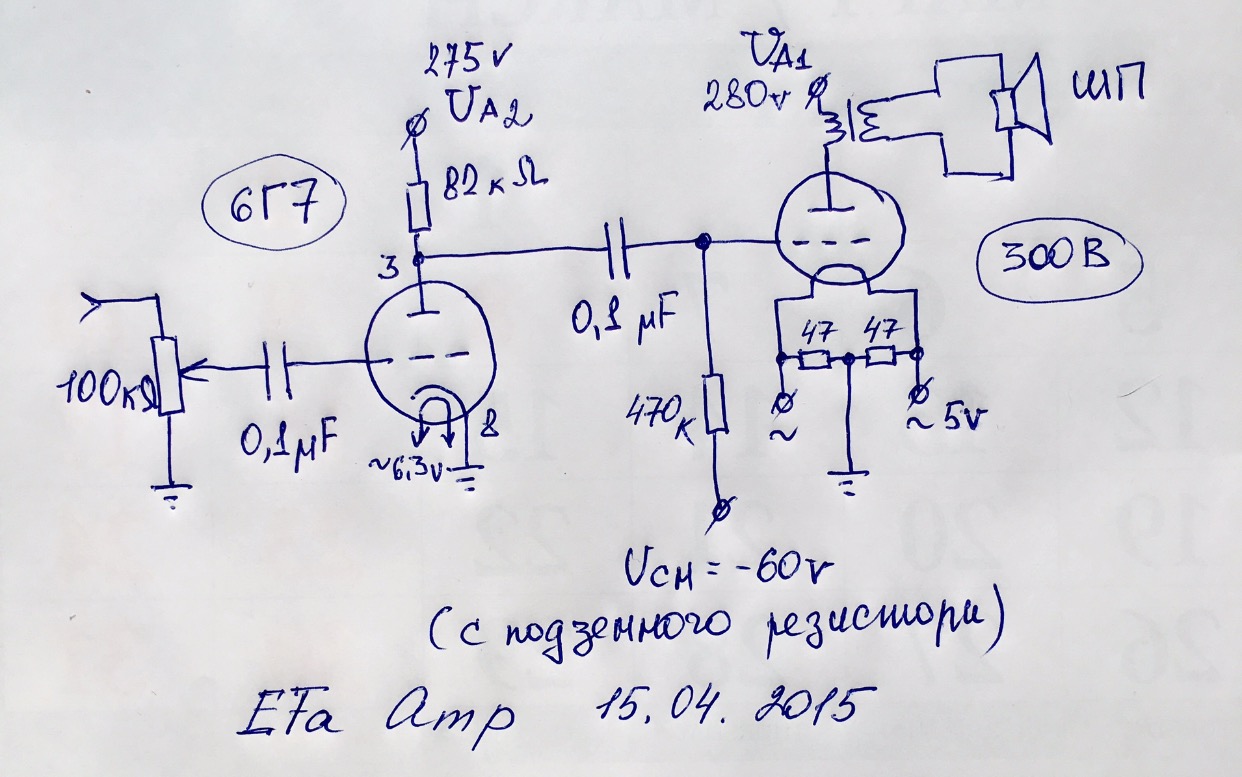 275v
UA2
82кΩ
6Г7
3
100кΩ
0,1μF
8
~6,3v
0,1μF
470к
UA1
280v
ШП
300В
47 47
~
~5v
Uсм = -60v
(с подземного резистори)
EFa Amp 15.04.2015
19 20 22
26 27